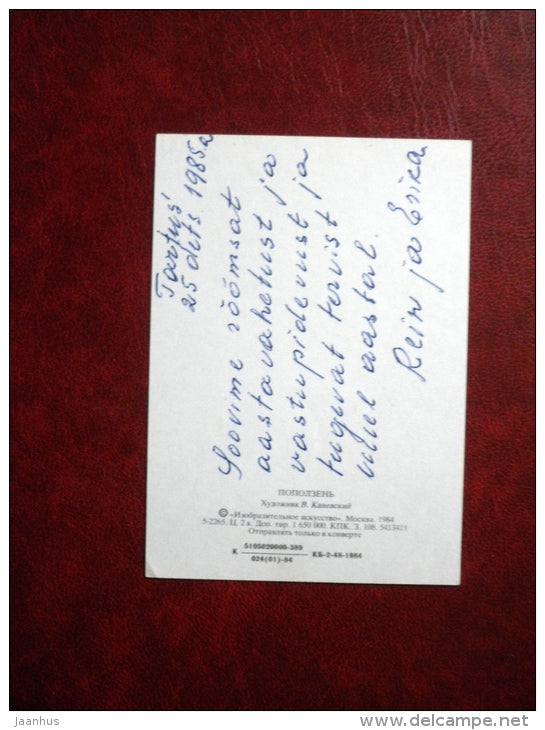 Tartus
25 dets. 1985.a
Soovime rõõmsat
aastavahetust ja
vastupidavust ja
tugevat tervist
uuel aastal.
Rein ja Erika
ПОПОЛЗЕНЬ
Художник В. Каневский
© «Изобразительное искусство». Москва. 1984
5-2265. Ц. 2 к. Доп. тир. 1 650 000. КПК. З. 108. 5413411
Отправлять только в конверте
К 5105020000-389 КБ-2-48-1984
024(01)-84
Jaanhus
delcampe.net